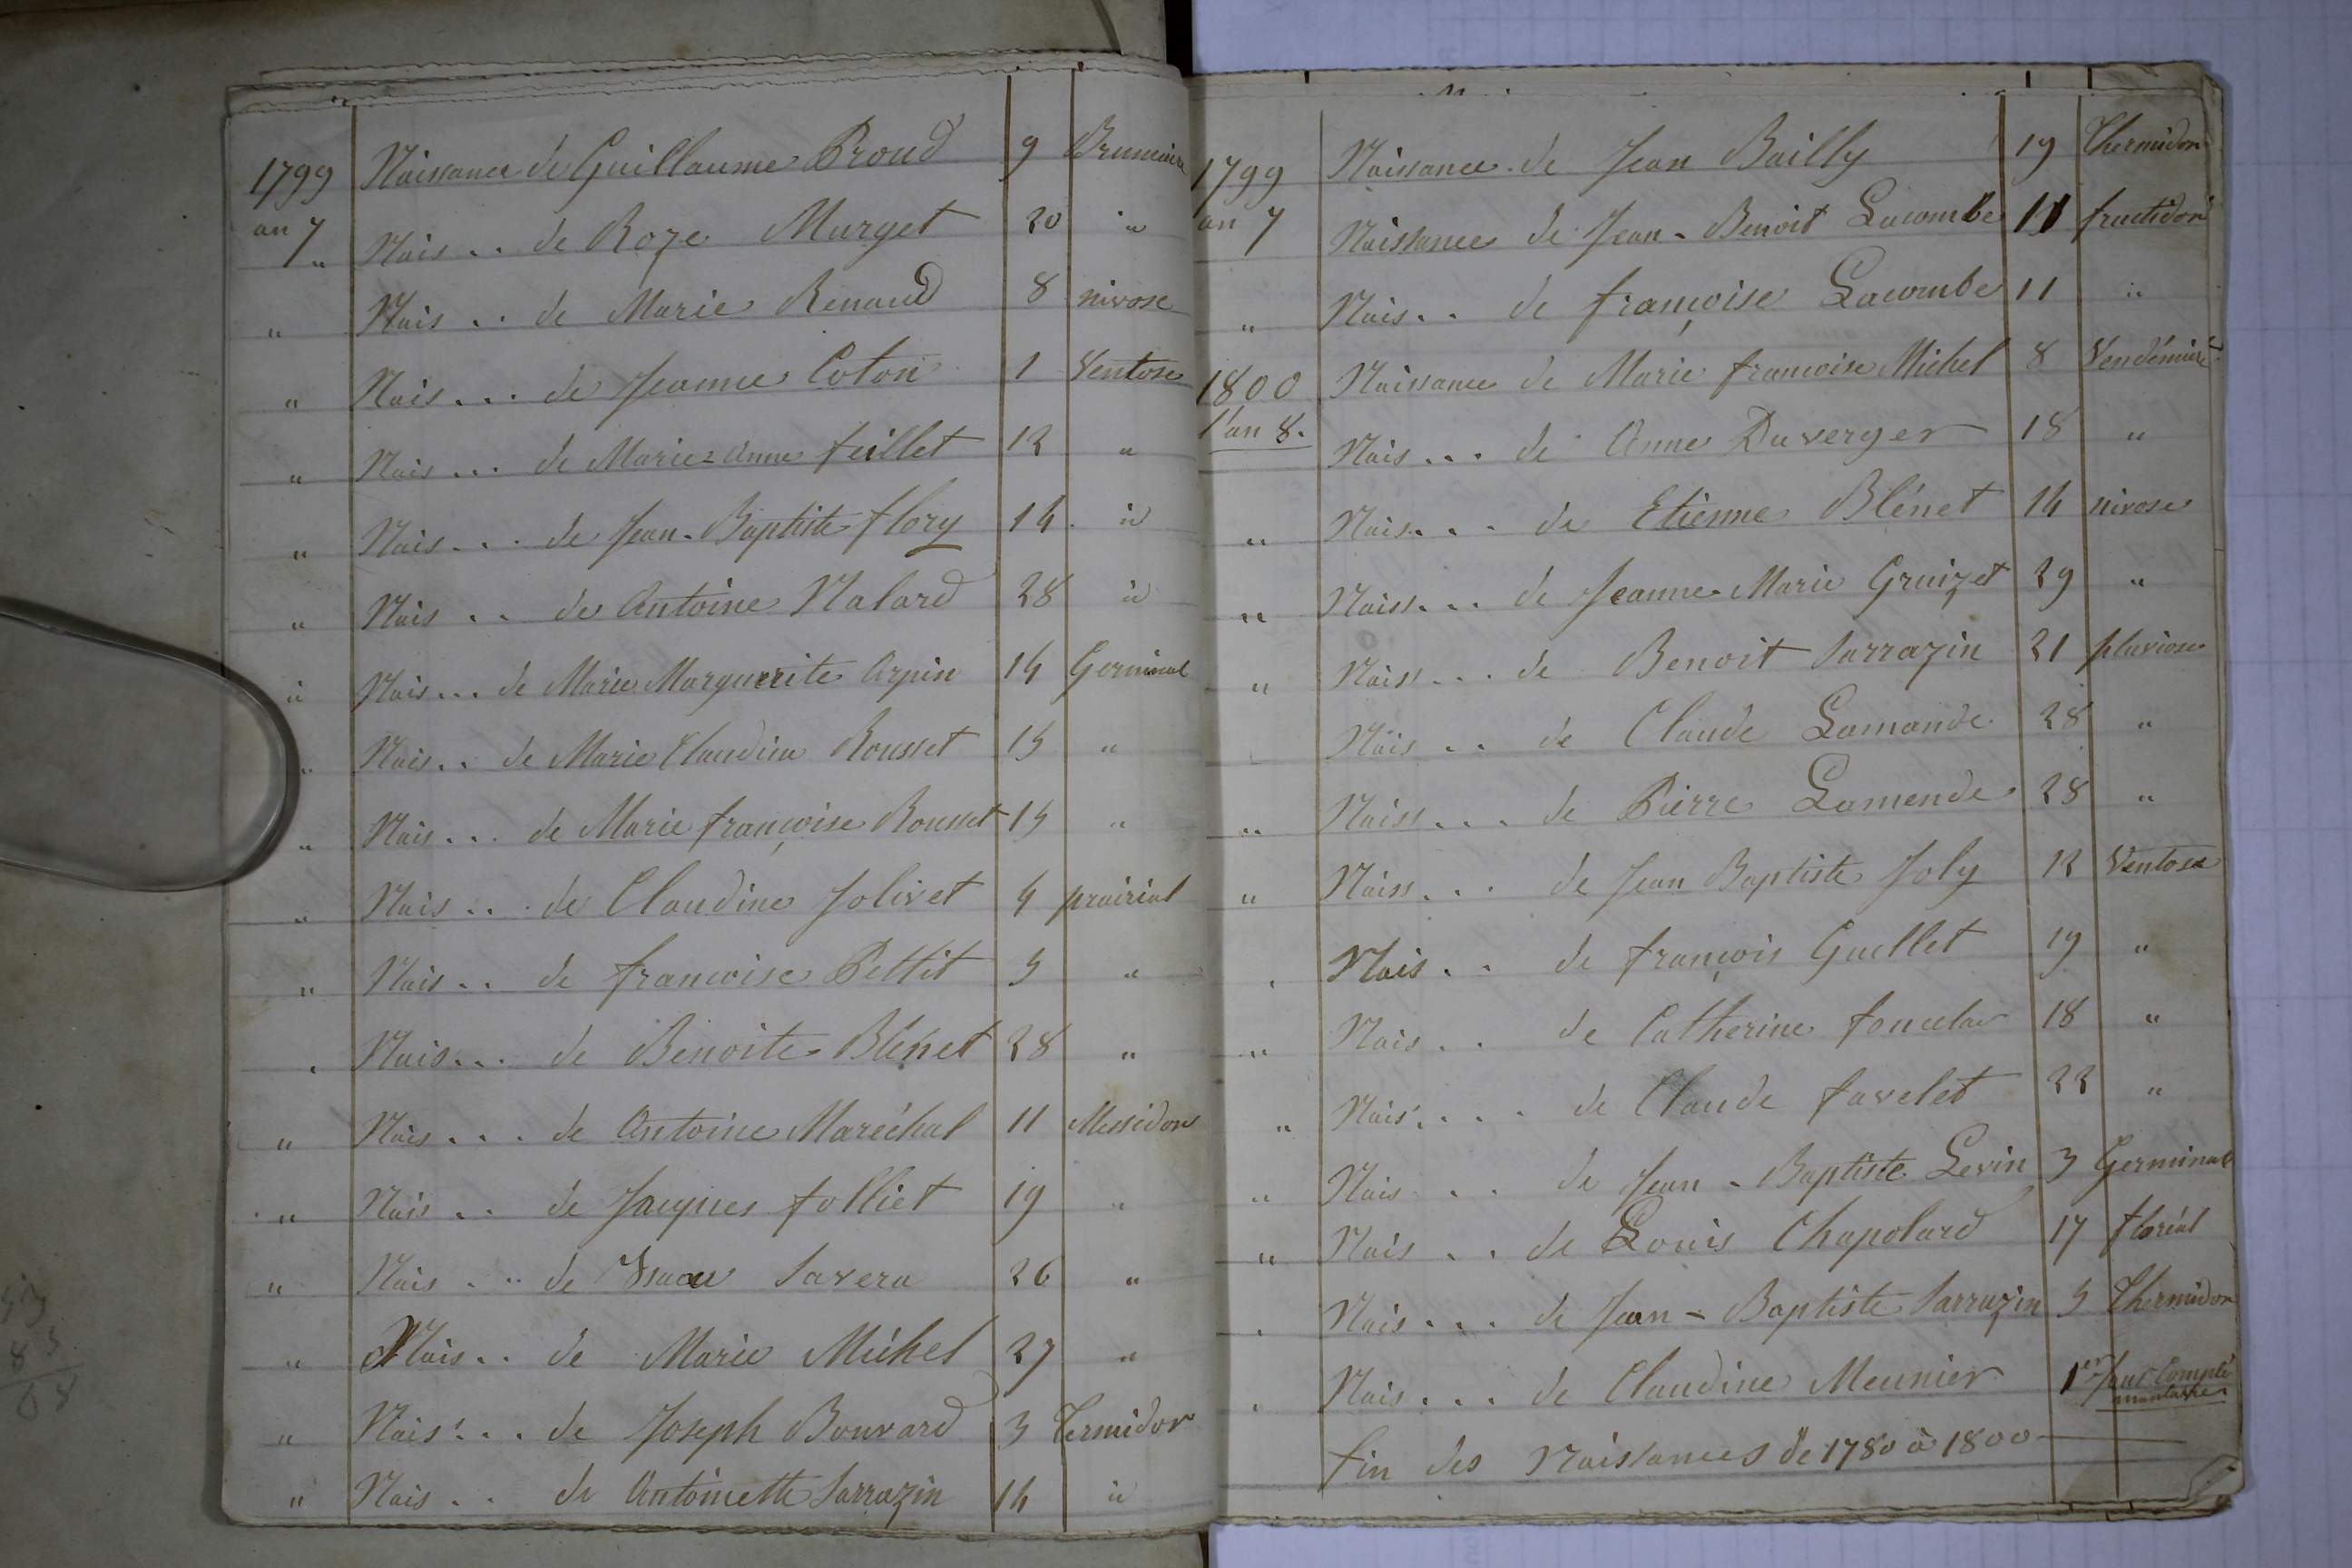 1799 Naissance de Guillaume Broud 9 Brumaire
an 7 " Nais .. de Roze Murget 20 "
" Nais .. de Marie Renaud 8 nivose
" Nais ... de Jeanne Coton 1 Ventose
" Nais ... de Marie-Anne feillet 12 "
" Nais ... de Jean-Baptiste flory 14 "
" Nais .. de Antoine Nalard 28 "
" Nais ... de Marie Marguerite Arpin 14 Germinal
" Nais .. de Marie Claudine Rousset 15 "
" Nais ... de Marie françoise Rousset 15 "
" Nais ... de Claudine Jolivet 4 prairial
" Nais .. de francoise Pettit 5 "
" Nais ... de Benoite Blénet 28 "
" Nais ... de Antoine Maréchal 11 Messidor
" Nais .. de Jacques folliet 19 "
" Nais ... de Savera 26 "
" Nais .. de Marie Michel 27 "
" Nais ... de Joseph Bouvard 3 Termidor
" Nais .. de Antoinette Sarrazin 14 "
1799 Naissance de Jean Bailly 19 Thermidor
an 7 Naissance de Jean-Benoit Lacombe 11 fructidor
" Nais .. de françoise Lacombe 11 "
1800 Naissance de Marie francoise Michel 8 Vendémiere
l'an 8. Nais ... de Anne Duverger 18 "
" Nais ... de Etienne Blénet 14 nivose
" Naiss ... de Jeanne-Marie Gruizet 29 "
" Naiss ... de Benoit Sarrazin 21 pluviose
Nais .. de Claude Lamande 28 "
" Naiss ... de Pierre Lamende 28 "
" Naiss ... de Jean Baptiste Joly 12 Ventose
Nais .. de françois Guellet 19 "
" Nais .. de Catherine 18 "
" Nais .... de Claude favelet 22 "
" Nais .. de Jean-Baptiste Levin 3 Germinal
" Nais .. de Louis Chapolard 17 floréal
Nais ... de Jean-Baptiste Sarrazin 5 Thermidor
Nais ... de Claudine Meunier 1er Jour Complé
mantaire
fin des Naissances de 1780 à 1800